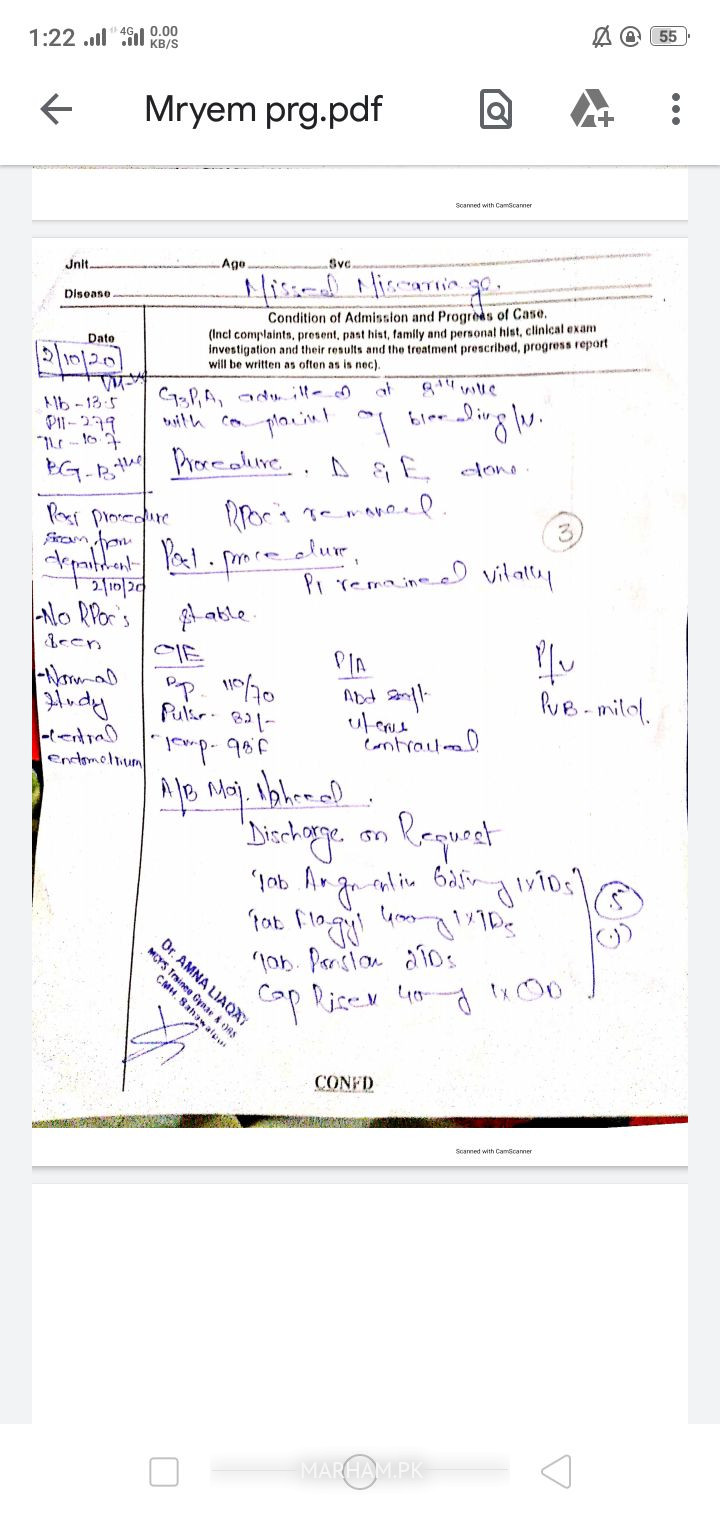 1:22 4G 0.00 KB/S 55
Mryem prg.pdf
Scanned with CamScanner
Unit Age Svc
Disease Missed Miscarriage.
Condition of Admission and Progress of Case.
(Incl complaints, present, past hist, family and personal hist, clinical exam
investigation and their results and the treatment prescribed, progress report
will be written as often as is nec).
Date
2/10/20
Hb - 13.5
Plt - 279
Tlc - 10.7
BG - B+ve
Post procedure
scan from
department
2/10/20
- No RPOC's
seen
- Normal
study
- Central
endometrium
G3P1A1 admitted at 8+4 wks
with complaint of bleeding P/v.
Procedure. D & E done.
RPOC's removed.
3
Post. procedure,
Pt remained vitally
stable.
O/E P/A P/v
Bp - 110/70 Abd soft PvB - mild.
Pulse - 82/- uterus
Temp - 98 F contracted
A/B Maj.
Discharge on Request
Tab. Augmentin 625mg 1xTDS
Tab Flagyl 400mg 1xTDS
Tab. Ponstan TDS
Cap Risek 40mg 1xOD
5
Dr. AMNA LIAQAT
MCPS Trainee Gynae & OBS
CMH, Bahawalpur
CONFD
Scanned with CamScanner
MARHAM.PK